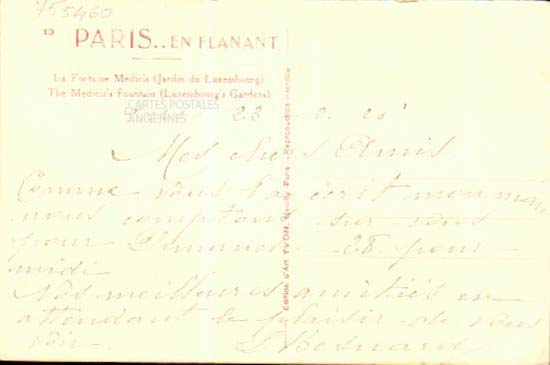 755460
10 PARIS.. EN FLANANT
La Fontaine Médicis (Jardin du Luxembourg)
The Medicis's Fountain (Luxembourg's Gardens)
CARTES POSTALES
ANCIENNES
23
Mes chers Amis
Comme vous l'a écrit mon mari
nous comptons sur vous
pour Dimanche 28 pour
midi
Nos meilleures amitiés en
attendant le plaisir de vous
voir.
Edition d'Art YVON, Paris - Reproduction interdite